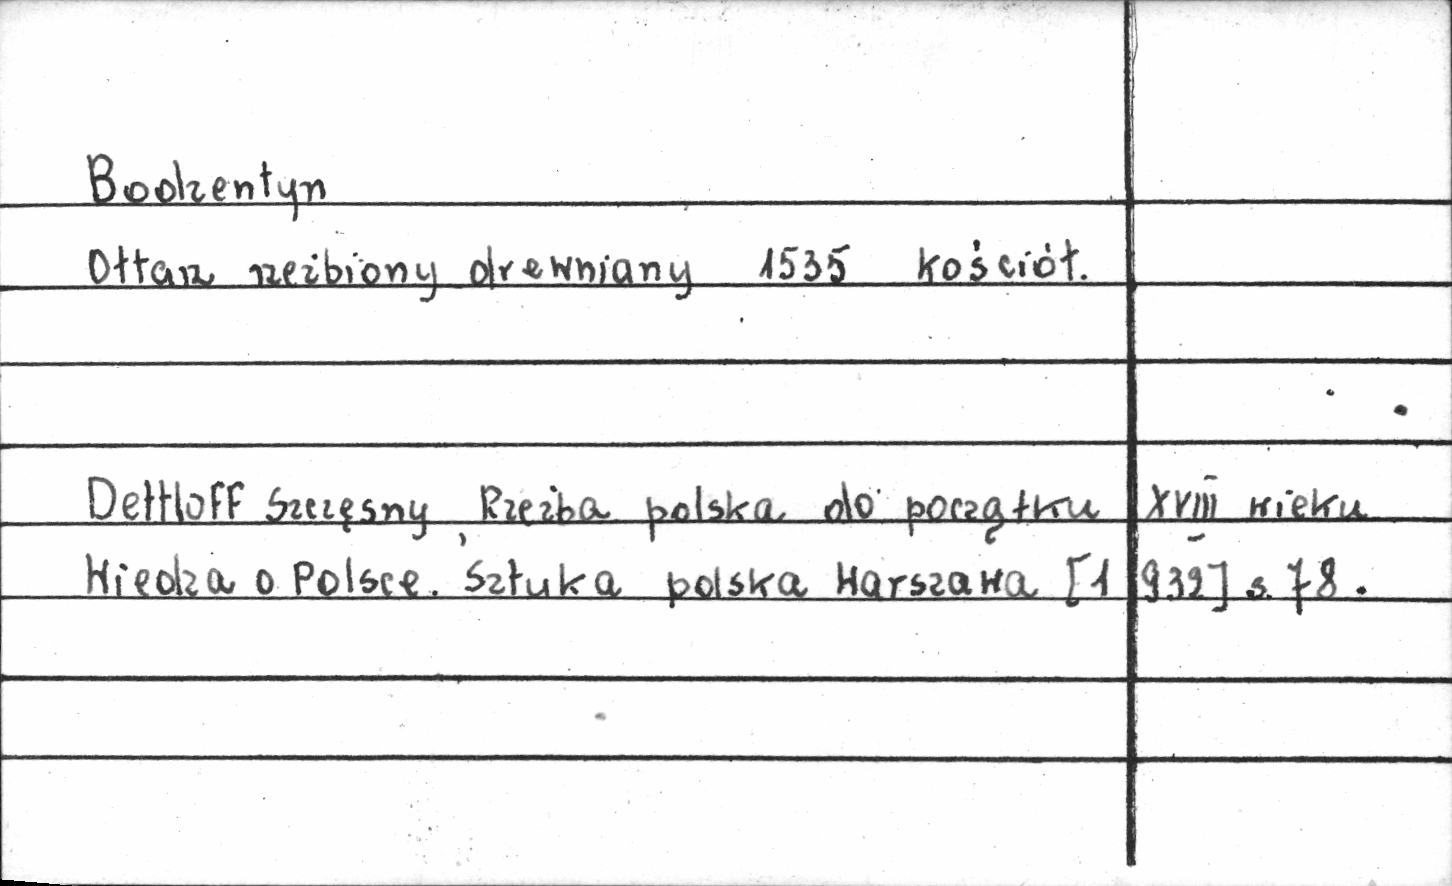 Bodzentyn
Ołtarz rzeźbiony drewniany 1535 kościół.
Dettloff Szczęsny, Rzeźba polska do początku XVIII wieku
Wiedza o Polsce. Sztuka polska Warszawa [1932] s. 78.